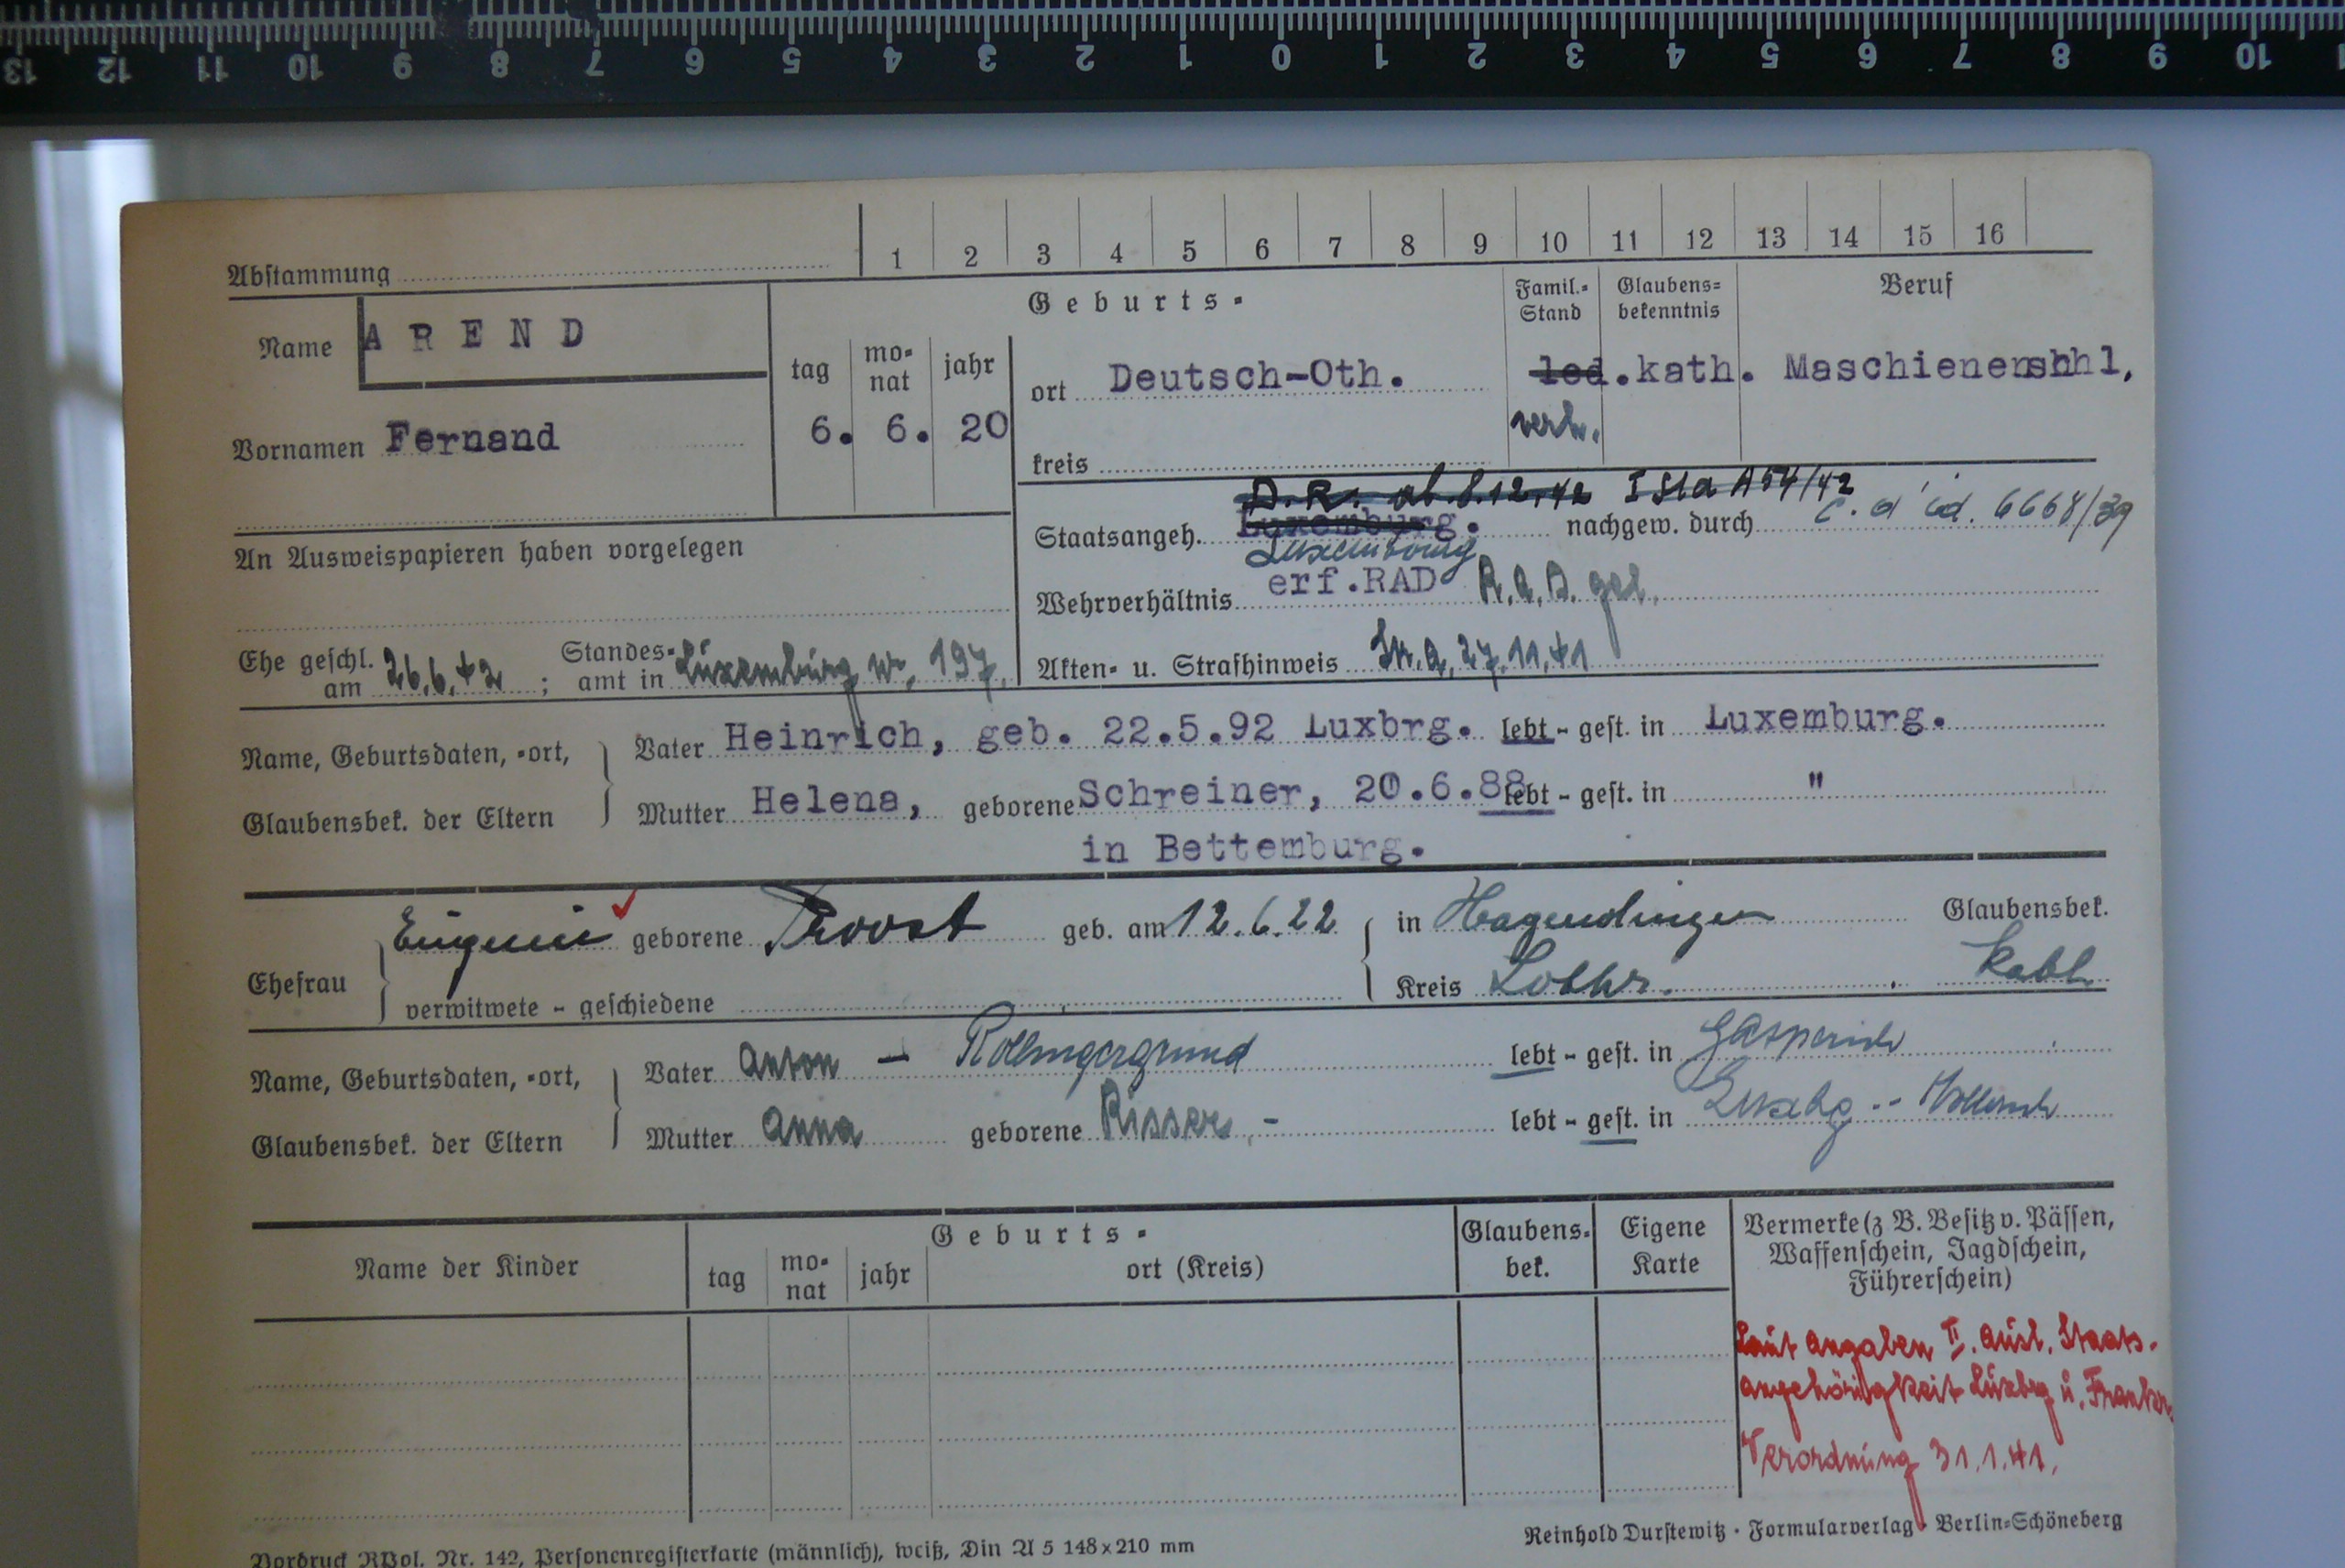 13 12 11 10 9 8 7 6 5 4 3 2 1 0 1 2 3 4 5 6 7 8 9 10
Abstammung 1 2 3 4 5 6 7 8 9 10 11 12 13 14 15 16
Name AREND
Vornamen Fernand
Geburts-
tag monat jahr
6. 6. 20
ort Deutsch-Oth.
kreis
Famil.-Stand
led.
verh.
Glaubensbekenntnis
kath.
Beruf
An Ausweispapieren haben vorgelegen
D. R. ab 8.12.42 I Sta A 54/42
Staatsangeh. Luxemburg. nachgew. durch c. d' id. 6668/39
Luxemburg
Wehrverhältnis erf.RAD R.A.D. gel.
Ehe geschl. am 26.6.42; Standesamt in Luxemburg Nr. 197.
Akten- u. Strafhinweis 27.11.41
Name, Geburtsdaten, -ort,
Glaubensbek. der Eltern
Vater Heinrich, geb. 22.5.92 Luxbrg. lebt - gest. in Luxemburg.
Mutter Helena, geborene Schreiner, 20.6.88 lebt - gest. in "
in Bettemburg.
Ehefrau Eugenie geborene Proost geb. am 12.6.22 in Hagendingen Glaubensbek.
verwitwete - geschiedene Kreis Lothr. kath.
Name, Geburtsdaten, -ort,
Glaubensbek. der Eltern
Vater Anton - Rollingergrund lebt - gest. in Gasperich
Mutter Anna geborene Risser, - lebt - gest. in Luxbg. - Hollerich
Name der Kinder
Geburts-
tag monat jahr ort (Kreis)
Glaubens-bek.
Eigene Karte
Vermerke (z B. Besitz v. Pässen,
Waffenschein, Jagdschein,
Führerschein)
Laut Angaben II. Ausl. Staats-
angehörigkeit Luxbrg u. Frankr.
Verordnung 31.1.41.
Vordruck RPol. Nr. 142, Personenregisterkarte (männlich), weiß, Din A 5 148x210 mm
Reinhold Durstewitz · Formularverlag · Berlin-Schöneberg